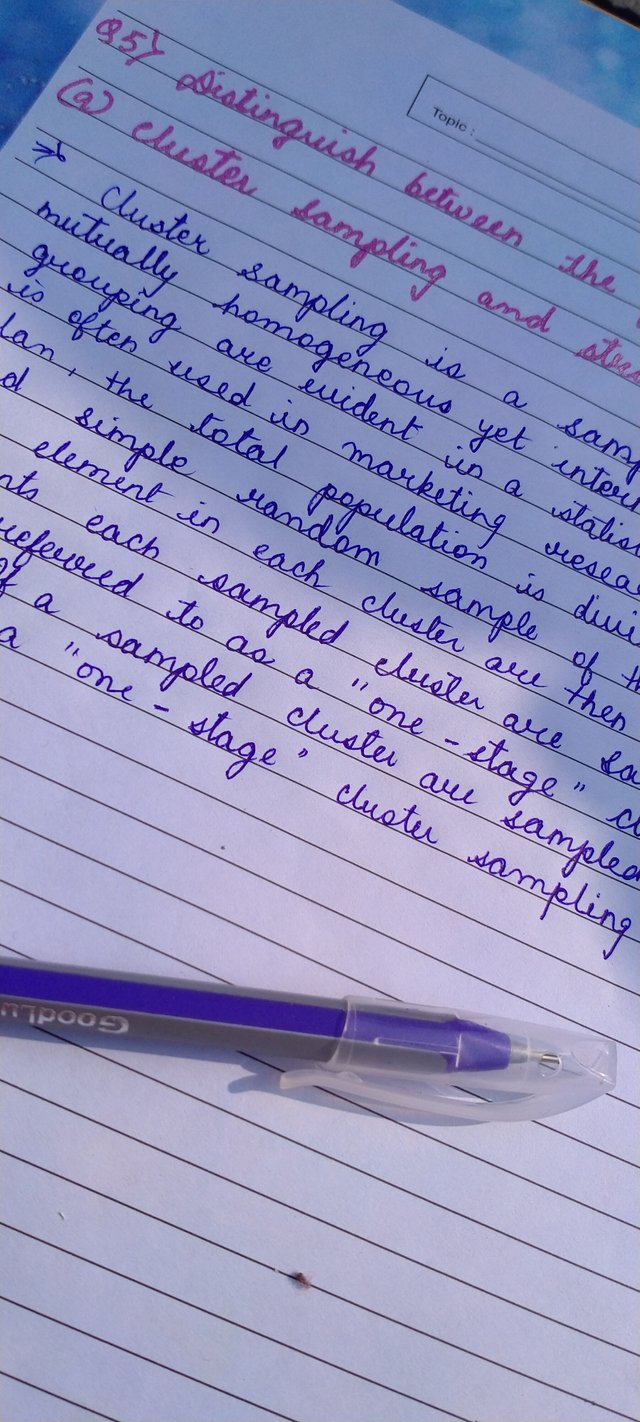 Topic :
Q5) Distinguish between the
(a) Cluster sampling and
Cluster sampling is a
mutually homogeneous yet
grouping are evident in a
is often used in marketing
the total population is
simple random sample of
element in each cluster are then
each sampled cluster are
referred to as a "one-stage"
of a sampled cluster are sampled
a "one-stage" cluster sampling
GoodLu